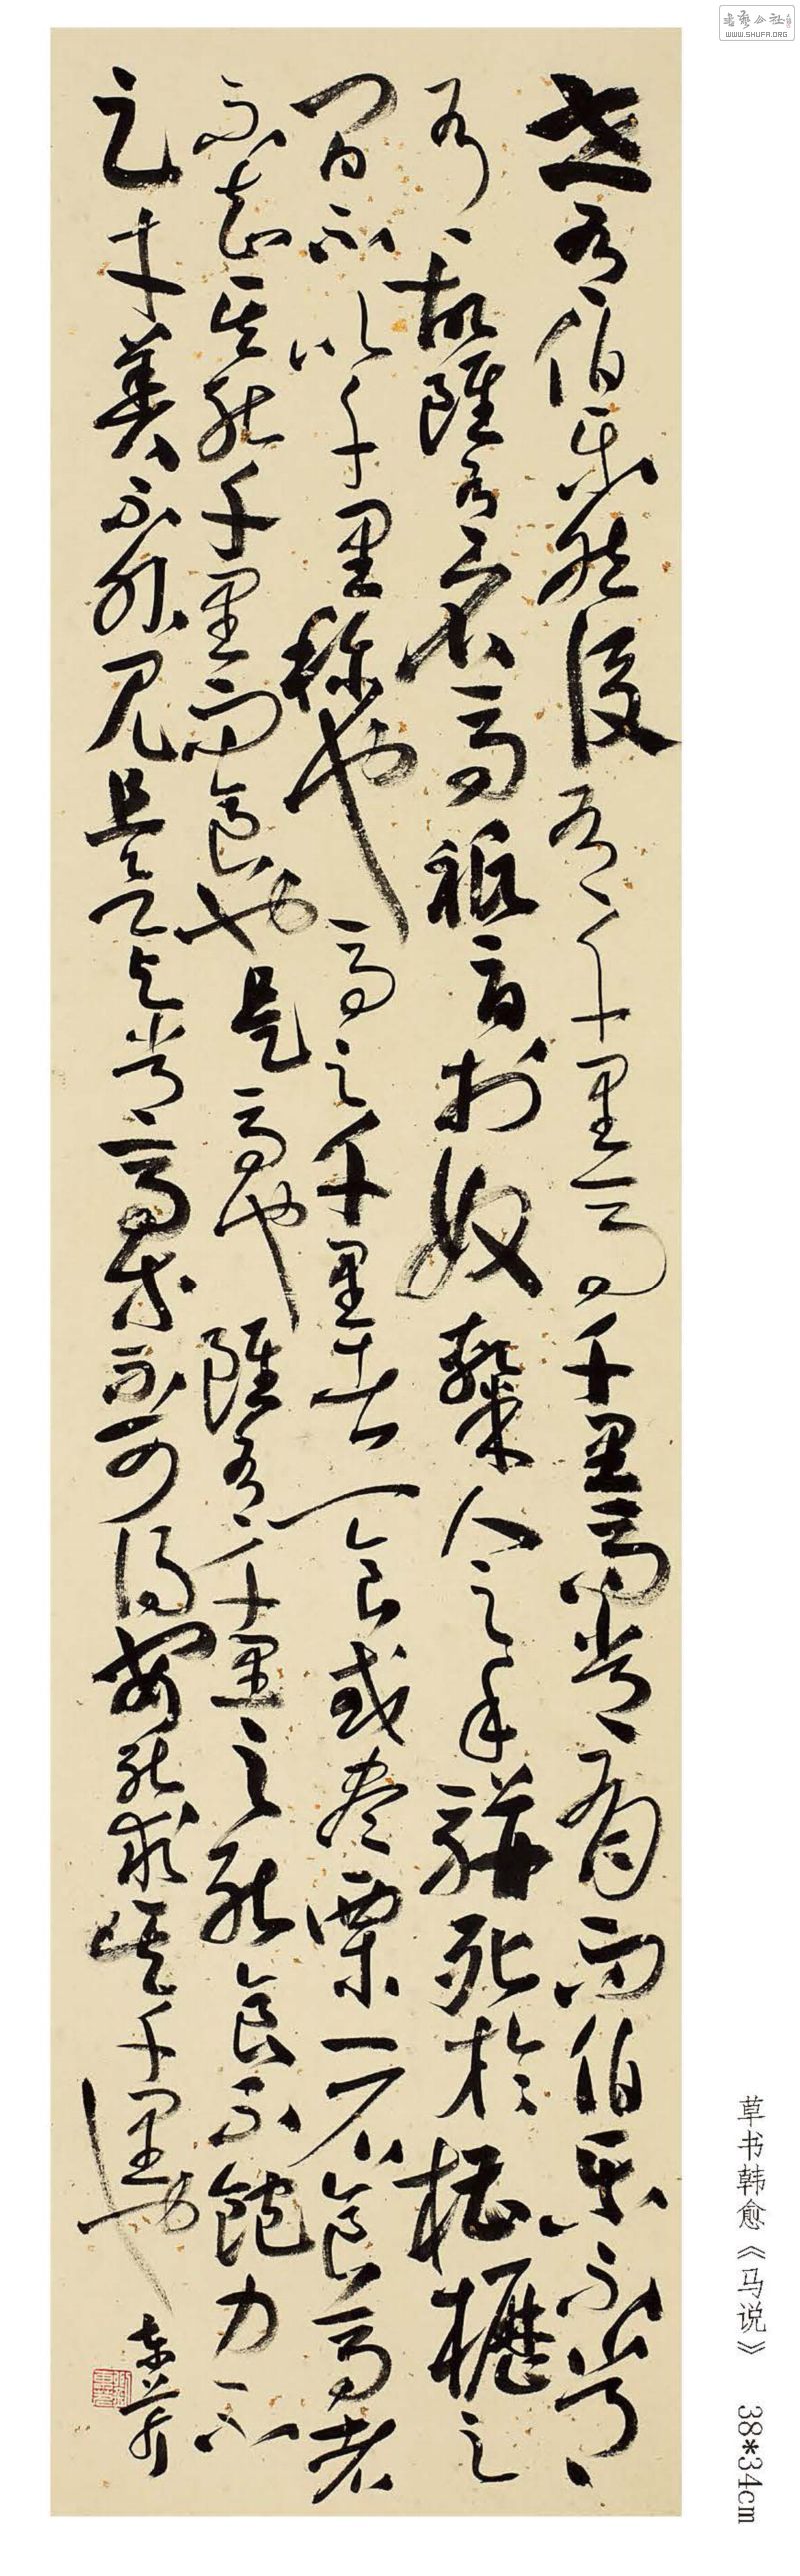 書藝公社
WWW.SHUFA.ORG
世有伯樂然後有千里馬千里馬常有而伯樂不常
有故雖有名馬祗辱於奴隸人之手駢死於槽櫪之
間不以千里稱也馬之千里者一食或尽粟一石食馬者
不知其能千里而食也是馬也雖有千里之能食不飽力不
足才美不外見且欲与常馬等不可得安能求其千里也
草书韩愈《马说》 38*34cm